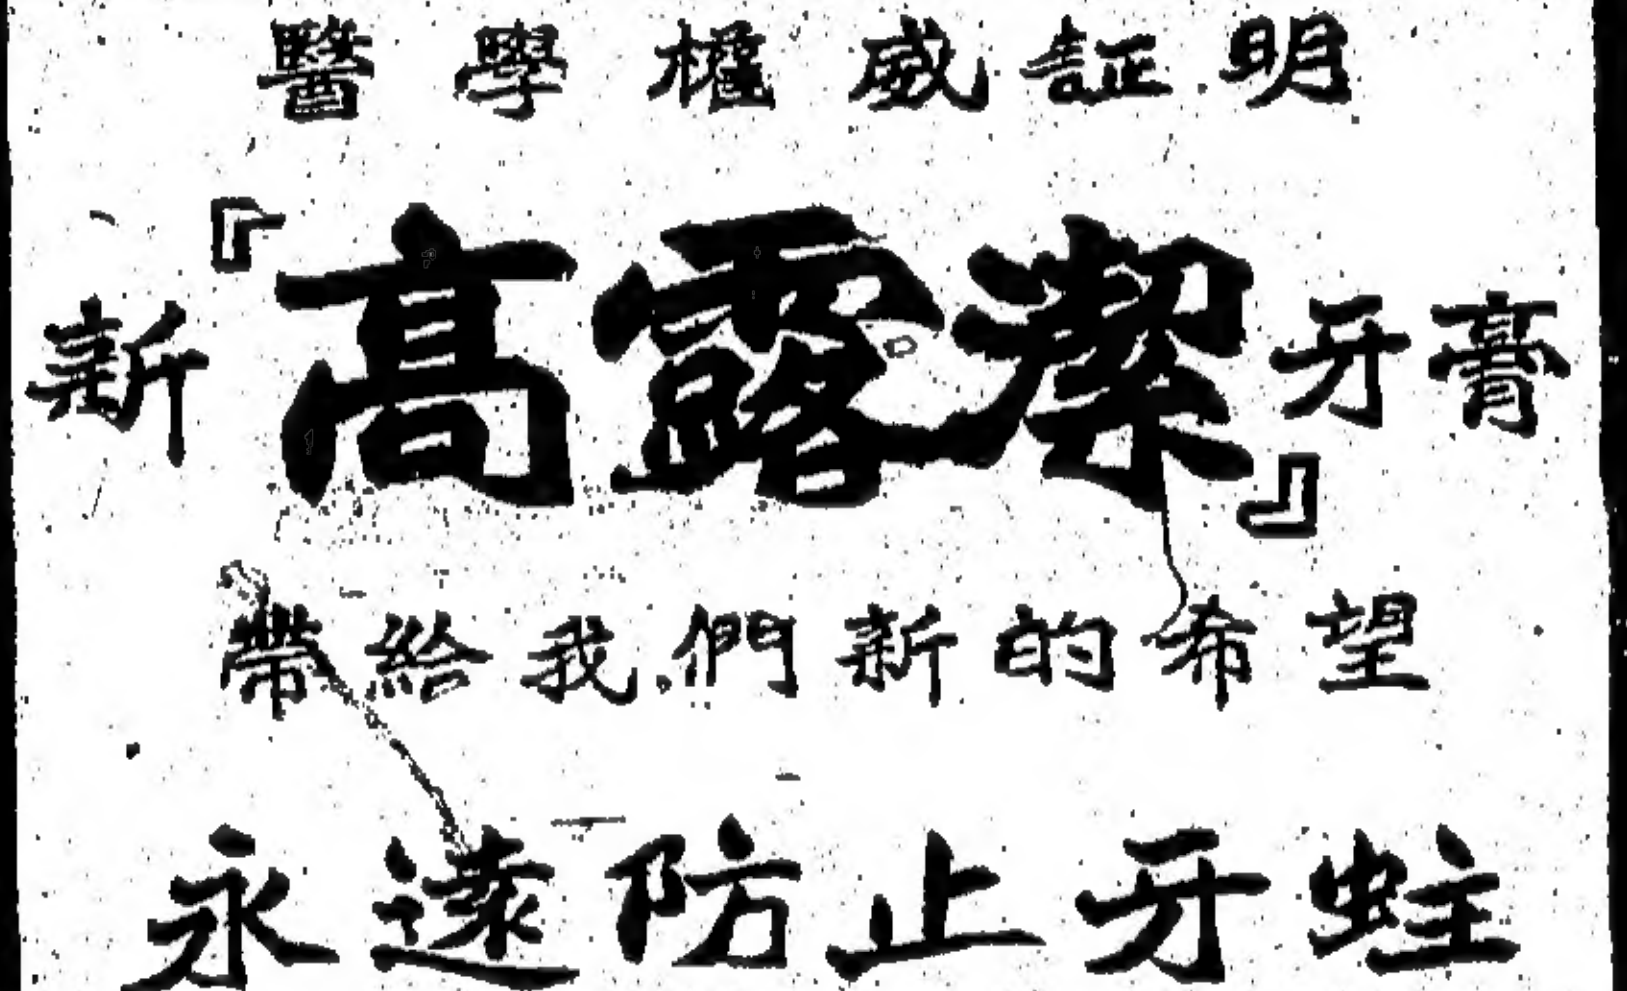 醫學權威証明
新『高露潔』牙膏
帶給我們新的希望
永遠防止牙蛀